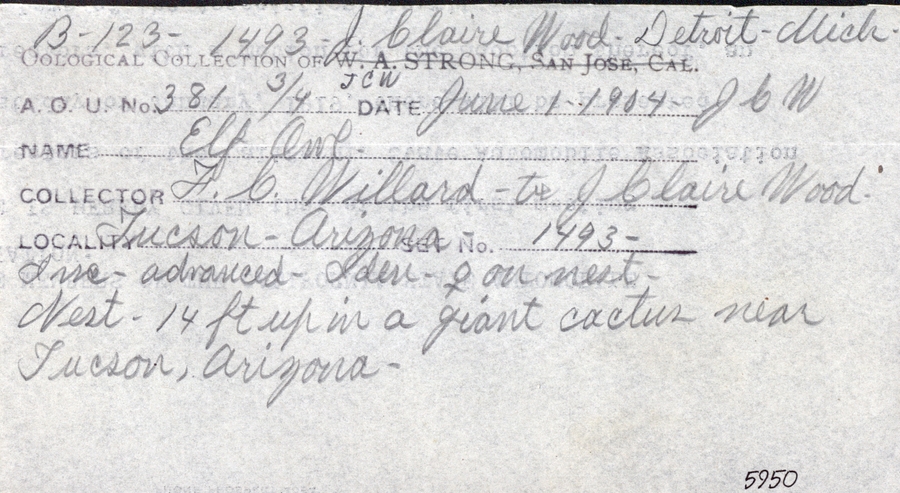 B-123- 1493- J. Claire Wood- Detroit- Mich-
OOLOGICAL COLLECTION OF W. A. STRONG, SAN JOSE, CAL.
JCW
A. O. U. No. 381 3/4 DATE June 1-1904- J C W
NAME Elf Owl
COLLECTOR F. C. Willard - to J Claire Wood-
LOCALITY Tucson- Arizona- SET No. 1493-
Inc- advanced- Iden- ♀ on nest-
Nest- 14 ft up in a giant cactus near
Tucson, Arizona-
5950